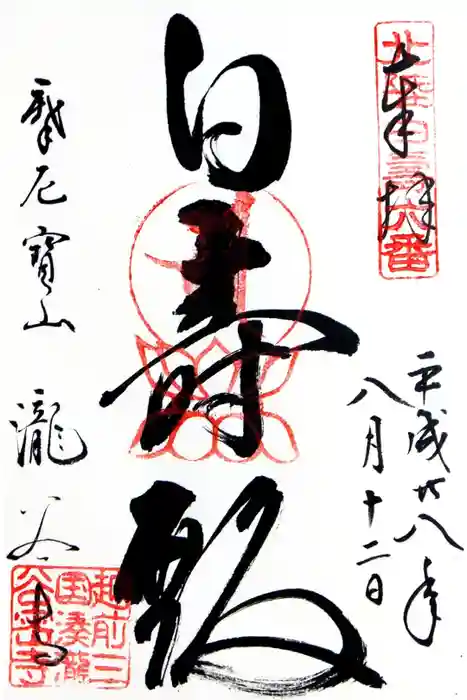 奉拝
北陸白寿六番
平成廿八年
八月十二日
白寿殿
摩尼寶山
瀧谷寺
越前三
国湊瀧
谷寺